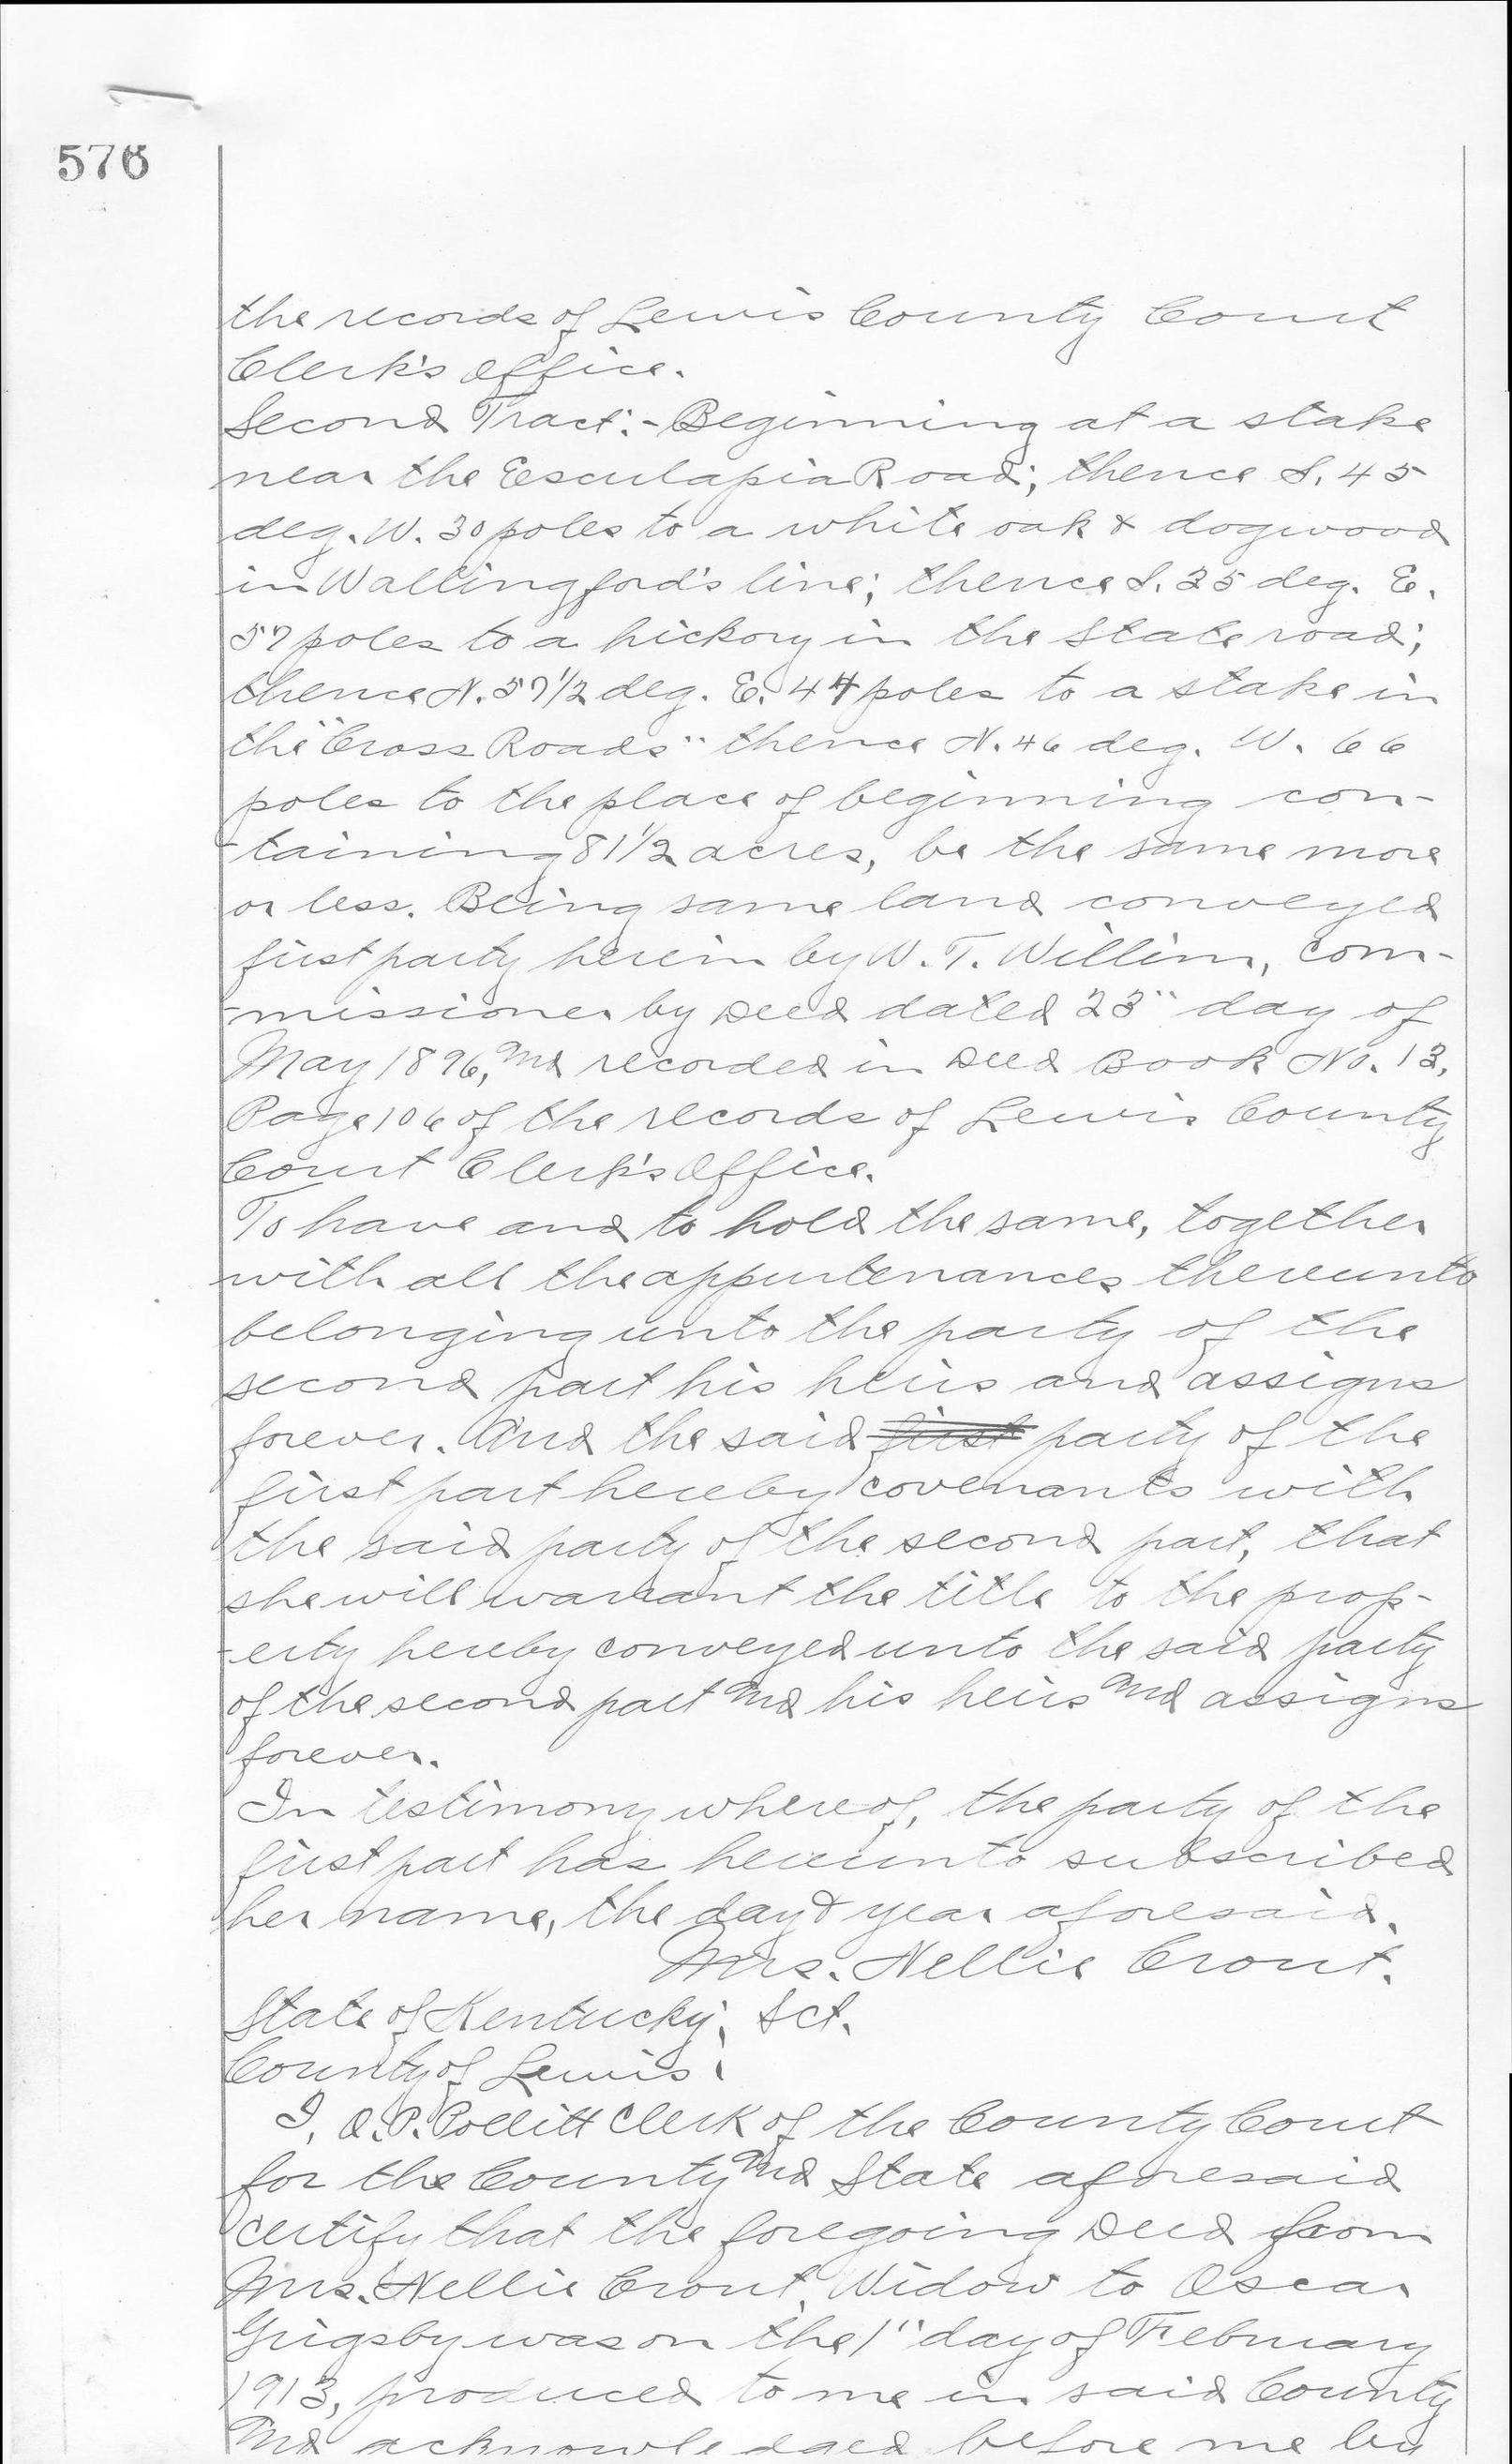 576
the records of Lewis County Court
Clerk's Office.
Second Tract:- Beginning at a stake
near the Esculapia Road; thence S. 45
deg. W. 30 poles to a white oak & dogwood
in Wallingford's line; thence S. 25 deg. E.
57 poles to a hickory in the State road;
thence N. 57 1/2 deg. E. 44 poles to a stake in
the "Cross Roads" thence N. 46 deg. W. 66
poles to the place of beginning con-
-taining 81 1/2 acres, be the same more
or less. Being same land conveyed
first party herein by W. T. Willim, com-
-missioner by Deed dated 23" day of
May 1896, and recorded in Deed Book No. 13,
Page 106 of the records of Lewis County
Court Clerk's Office.
To have and to hold the same, together
with all the appurtenances thereunto
belonging unto the party of the
second part his heirs and assigns
forever. And the said first party of the
first part hereby covenants with
the said party of the second part, that
she will warrant the title to the prop-
-erty hereby conveyed unto the said party
of the second part and his heirs and assigns
forever.
In testimony whereof, the party of the
first part has hereunto subscribed
her name, the day & year aforesaid.
Mrs. Nellie Crout.
State of Kentucky; Sct.
County of Lewis;
I, O. P. Pollitt Clerk of the County Court
for the County and State aforesaid
certify that the foregoing Deed from
Mrs. Nellie Crout, Widow to Oscar
Grigsby was on the 1" day of February
1913, produced to me in said County
and acknowledged before me by